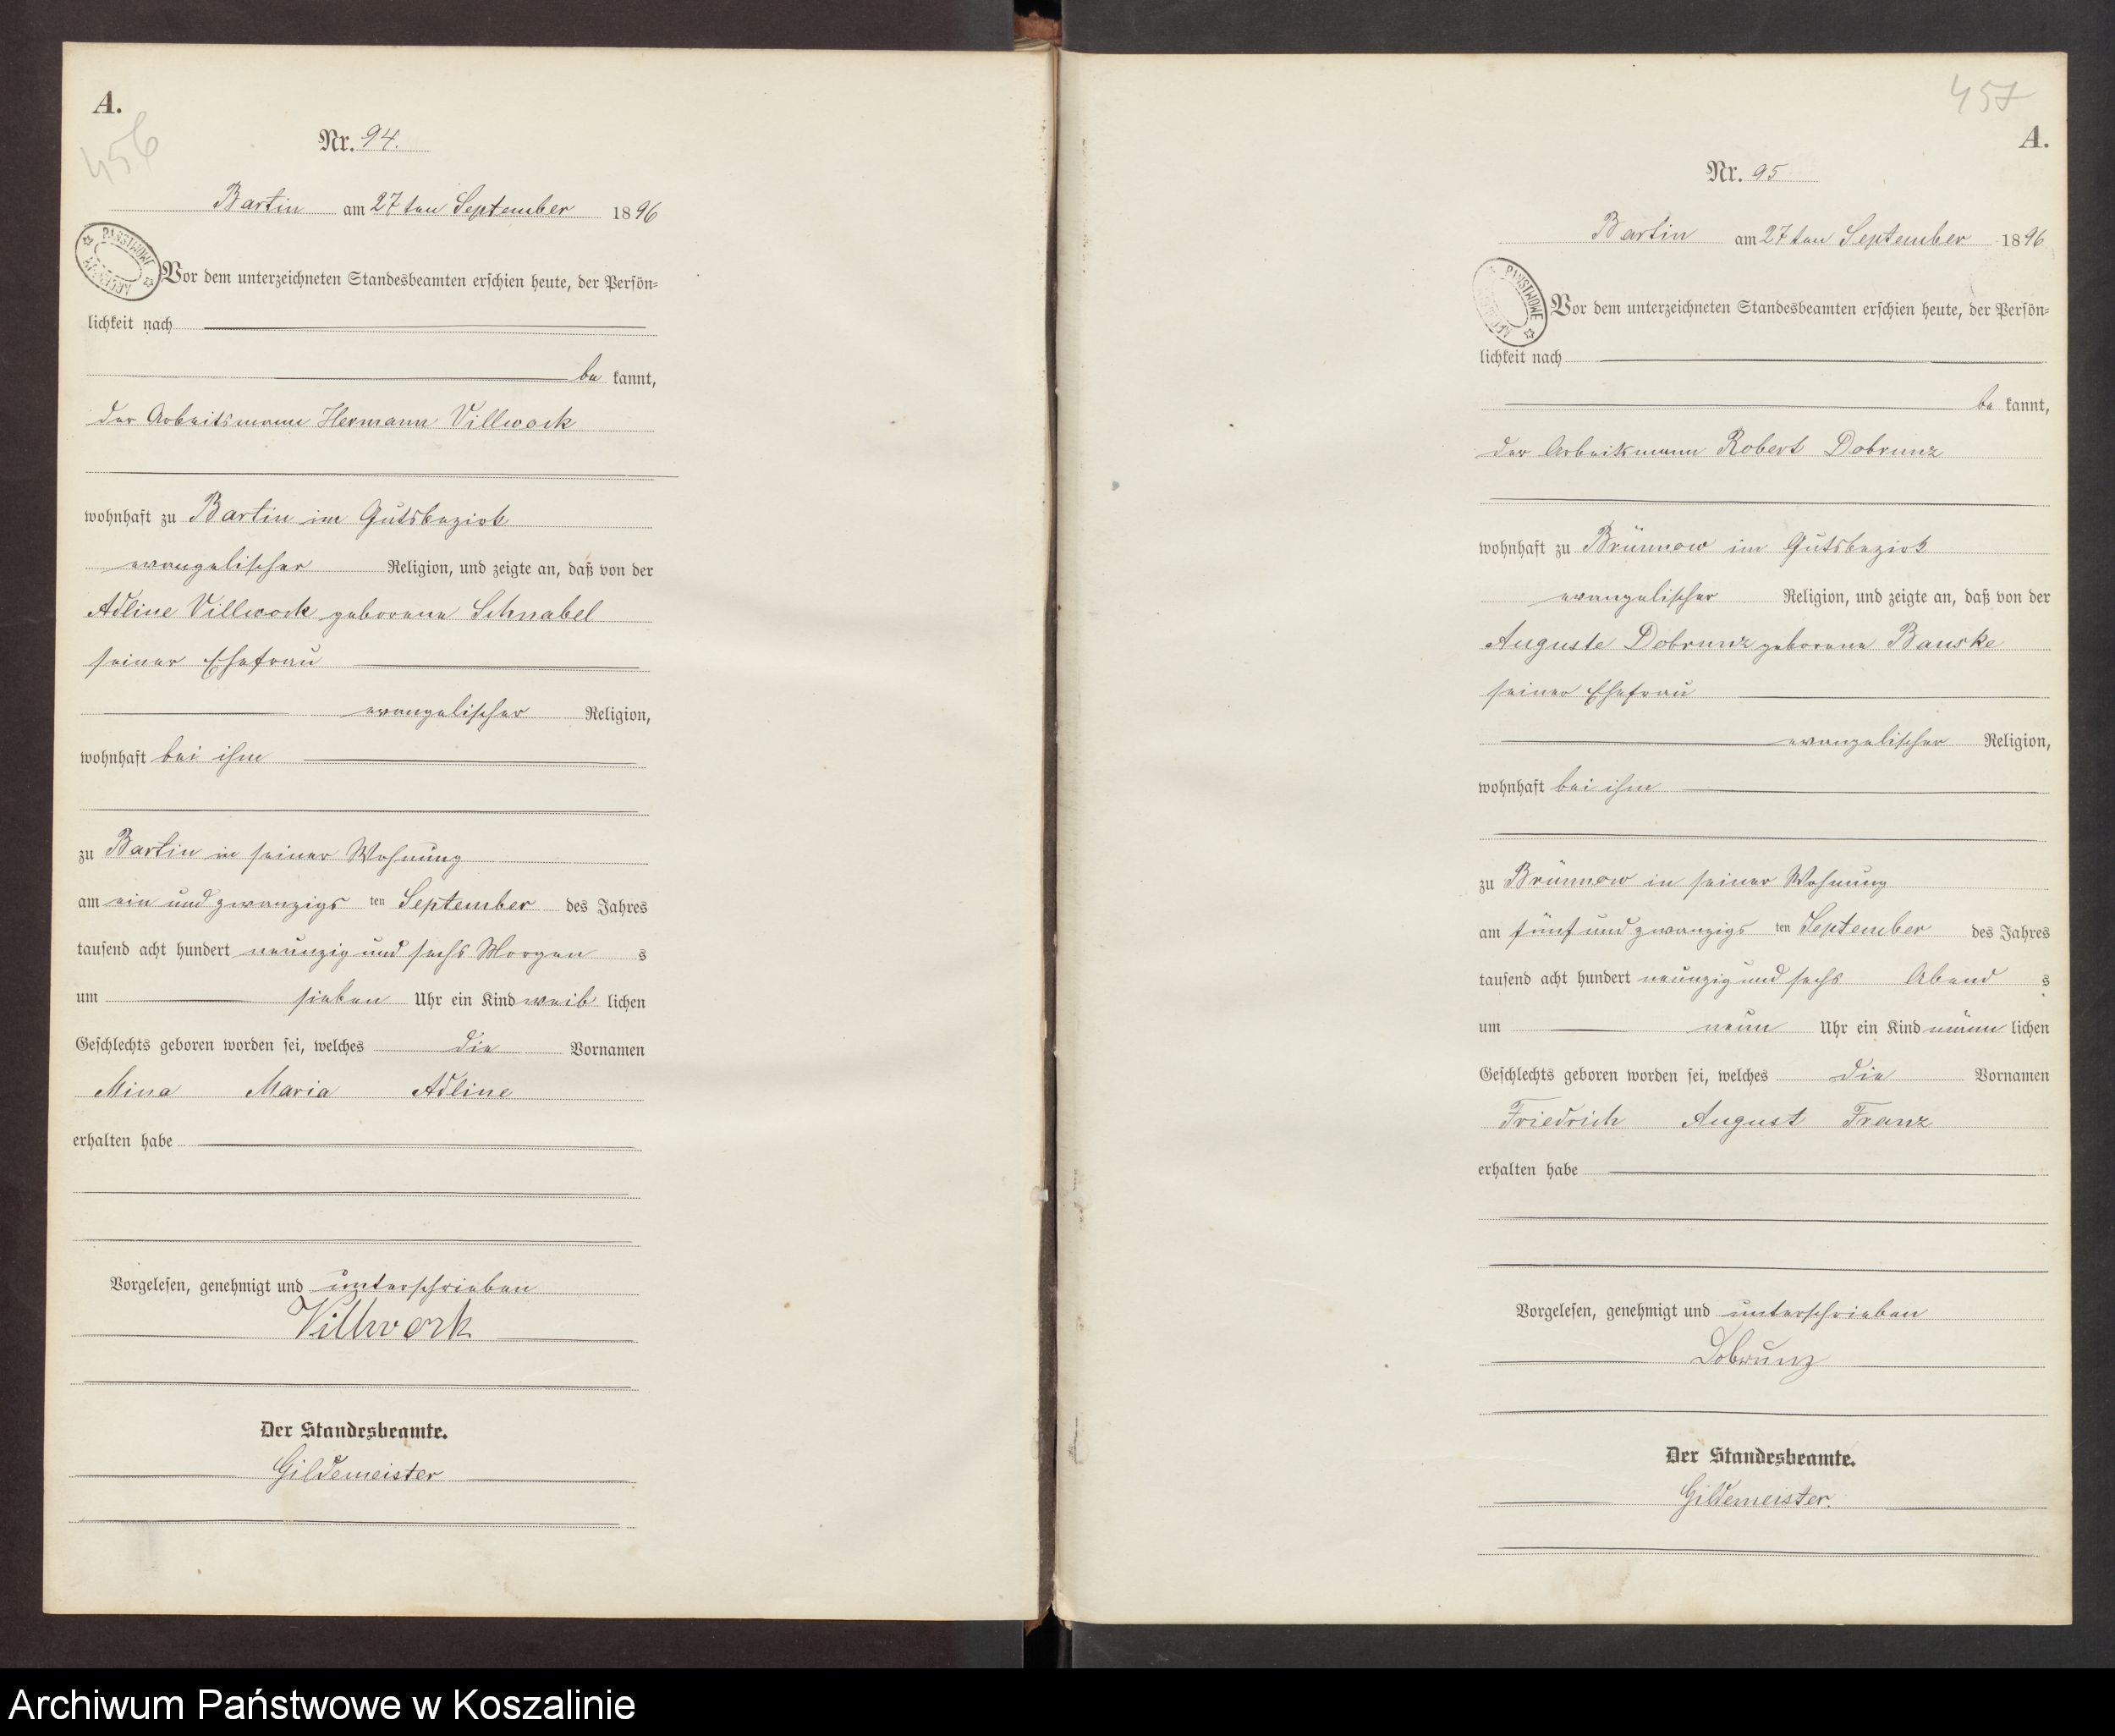 A.
456
Nr. 94.
Bartin am 27ten September 1896
PAŃSTWOWE
Vor dem unterzeichneten Standesbeamten erschien heute, der Persön-
lichkeit nach
be kannt,
der Arbeitsmann Hermann Villwock
wohnhaft zu Bartin im Gutsbezirk
evangelischer Religion, und zeigte an, daß von der
Adline Villwock geborene Schnabel
seiner Ehefrau
evangelischer Religion,
wohnhaft bei ihm
zu Bartin in seiner Wohnung
am ein und zwanzigs ten September des Jahres
tausend acht hundert neunzig und sechs Morgen s
um sieben Uhr ein Kind weib lichen
Geschlechts geboren worden sei, welches die Vornamen
Mina Maria Adline
erhalten habe
Vorgelesen, genehmigt und unterschrieben
Villwock
Der Standesbeamte.
Gildemeister
457
A.
Nr. 95
Bartin am 27ten September 1896
PAŃSTWOWE
Vor dem unterzeichneten Standesbeamten erschien heute, der Persön-
lichkeit nach
be kannt,
der Arbeitsmann Robert Dobrunz
wohnhaft zu Brünnow im Gutsbezirk
evangelischer Religion, und zeigte an, daß von der
Auguste Dobrunz geborene Banske
seiner Ehefrau
evangelischer Religion,
wohnhaft bei ihm
zu Brünnow in seiner Wohnung
am fünf und zwanzigs ten September des Jahres
tausend acht hundert neunzig und sechs Abend s
um neun Uhr ein Kind männ lichen
Geschlechts geboren worden sei, welches die Vornamen
Friedrich August Franz
erhalten habe
Vorgelesen, genehmigt und unterschrieben
Dobrunz
Der Standesbeamte.
Gildemeister.
Archiwum Państwowe w Koszalinie